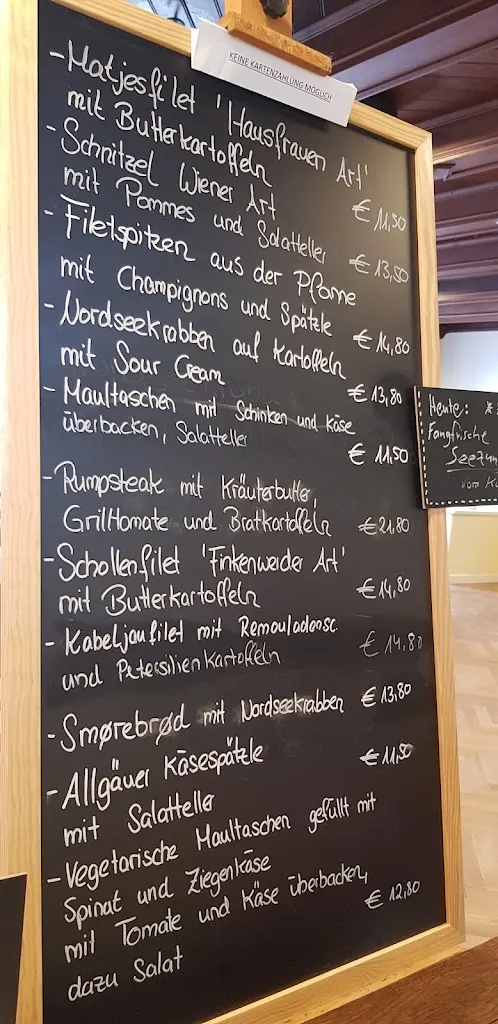 KEINE KARTENZAHLUNG MÖGLICH
- Matjesfilet 'Hausfrauen Art'
mit Butterkartoffeln € 11,50
- Schnitzel Wiener Art
mit Pommes und Salatteller € 13,50
- Filetspitzen aus der Pfanne
mit Champignons und Spätzle € 14,80
- Nordseekrabben auf Kartoffeln
mit Sour Cream € 13,80
- Maultaschen mit Schinken und Käse
überbacken, Salatteller € 11,50
- Rumpsteak mit Kräuterbutter,
Grilltomate und Bratkartoffeln € 21,80
- Schollenfilet 'Finkenwerder Art'
mit Butterkartoffeln € 14,80
- Kabeljaufilet mit Remouladensc.
und Petersilienkartoffeln € 14,80
- Smørebrød mit Nordseekrabben € 13,80
- Allgäuer Käsespätzle
mit Salatteller € 11,50
- Vegetarische Maultaschen gefüllt mit
Spinat und Ziegenkäse
mit Tomate und Käse überbacken,
dazu Salat € 12,80
Heute:
Fangfrische
Seezun
vom